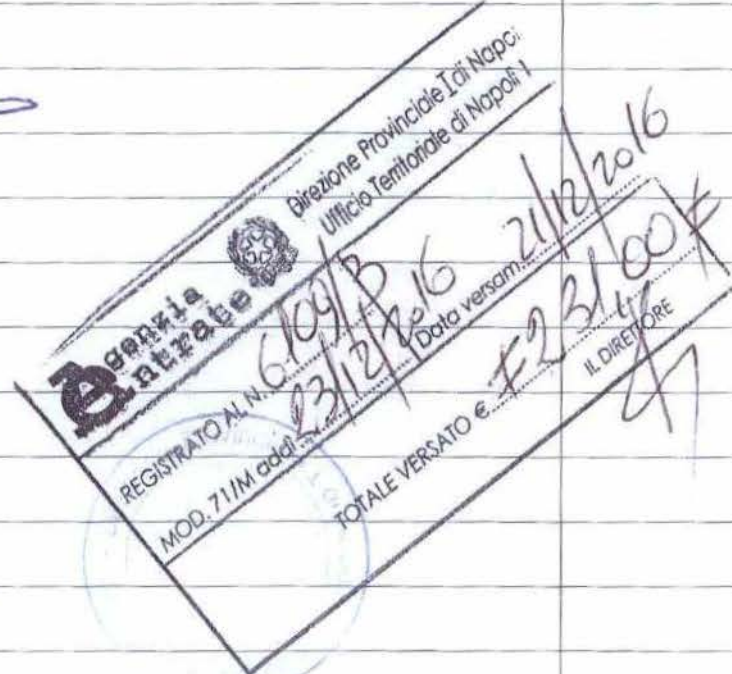 Agenzia
Entrate
Direzione Provinciale I di Napoli
Ufficio Territoriale di Napoli 1
REGISTRATO AL N. 6109/B
MOD. 71/M addì 23/12/2016 Data versam. 21/12/2016
TOTALE VERSATO € #231,00#
IL DIRETTORE